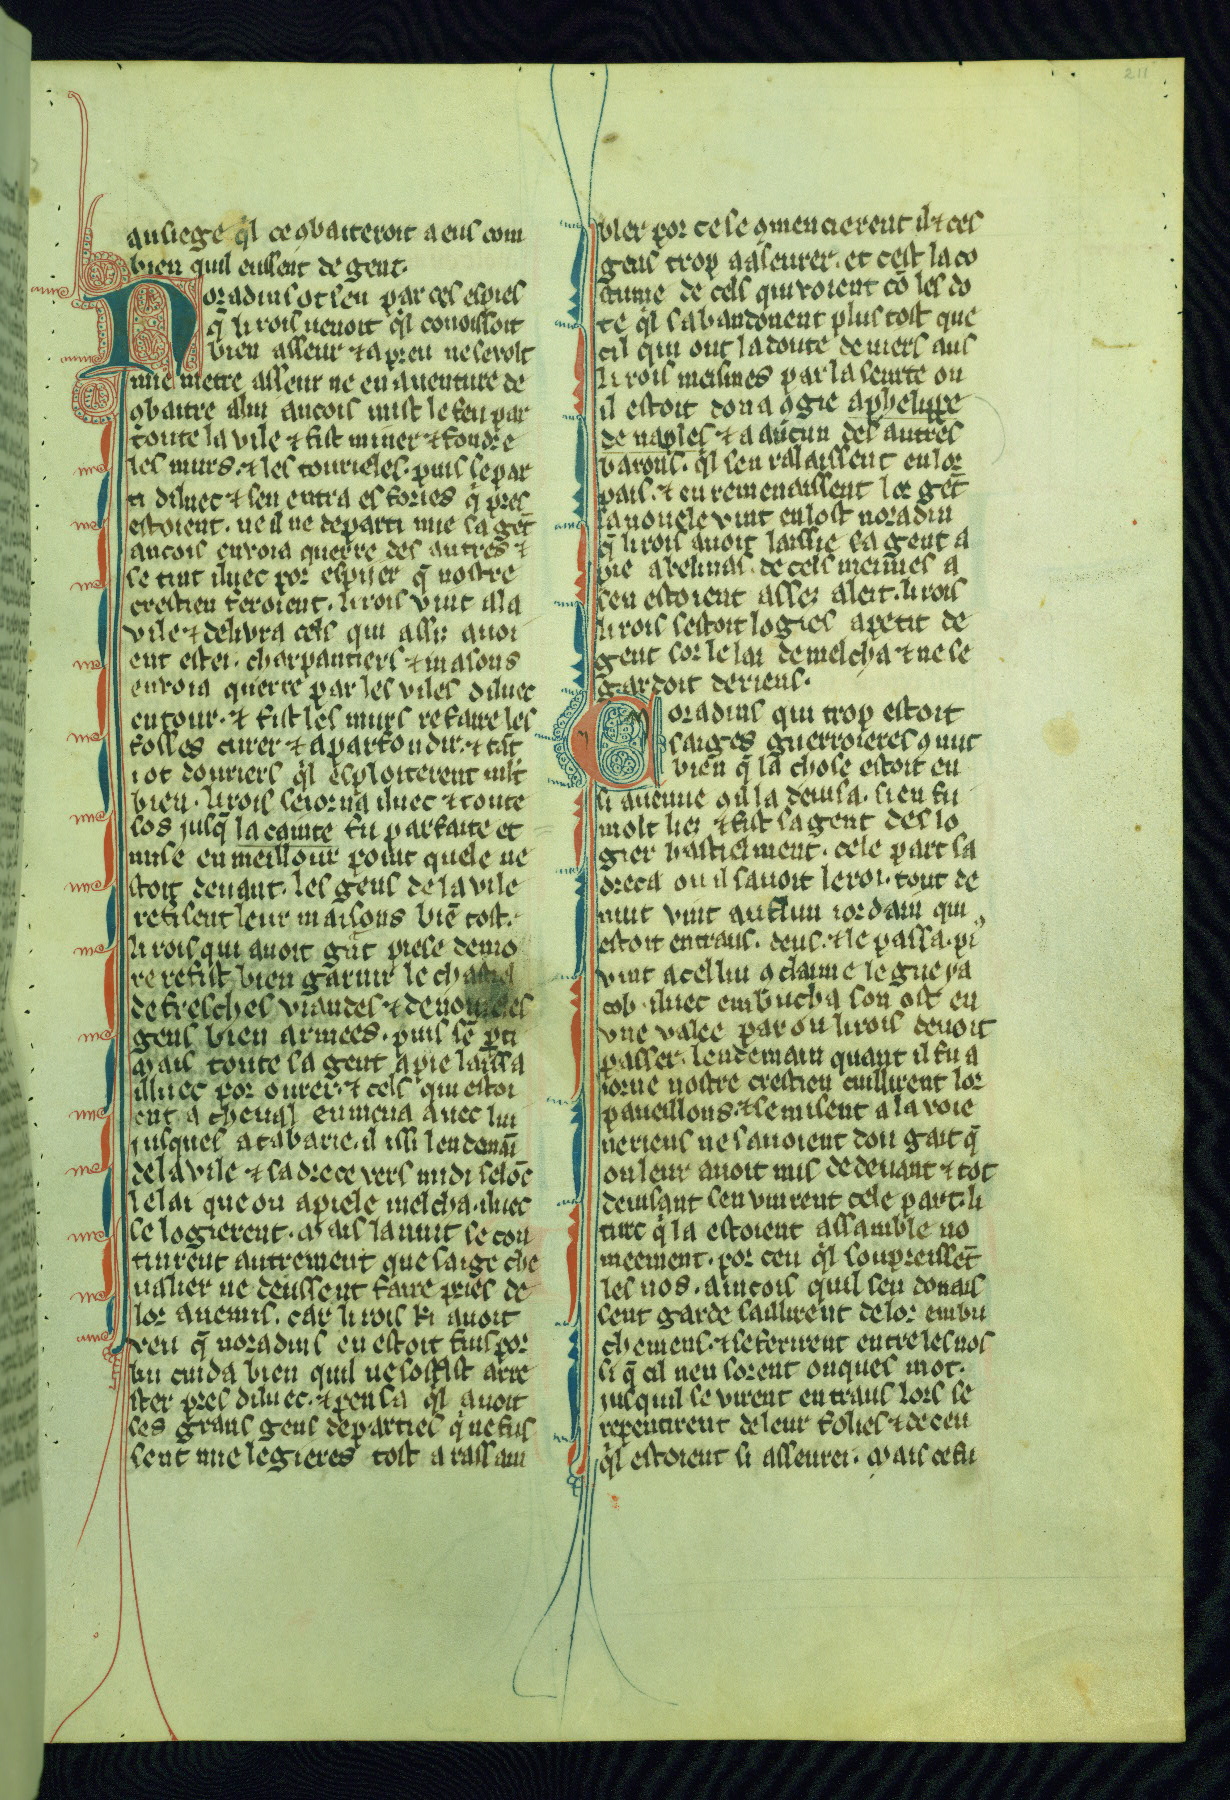 211
au siege ql ce ɔbaiteroit a eus com
bien quil eussent de gent.
Noradins ot seu par ces espies
q̄ li rois uenoit ql conoissoit
bien asseur ⁊ a preu ne se volt
mie metre asseur ne en auenture de
ɔbaitre a lui ancois mist le feu par
toute la vile ⁊ fist miner ⁊ fondre
les murs. ⁊ les tourieles. puis se par
ti diluec ⁊ sen entra es fories q̄ pres
estoient. ne il ne departi mie sa gēt
ancois enuoia querre des autres ⁊
se tint iluec por espiier q̄ nostre
crestien feroient. li rois vint a la
vile ⁊ deliura cels qui assis auoi
ent estei. charpantiers ⁊ masons
enuoia querre par les viles diluec
entour. ⁊ fist les murs refaire les
fosses curer ⁊ aparfondir. ⁊ fist
tot douriers ql esploiterent mlt
bien. li rois seiorna iluec ⁊ toute
sos jusq̄ la cainte fu parfaite et
mise en meillour point quele ne
stoit deuant. les gens de la vile
refisent leur maisons biē tost.
li rois qui auoit gāt piese demo
re refist bien garnir le chastel
de fresches viandes ⁊ de noueles
gens bien armees. puis sē pti
mais toute sa gent a pie laissa
illuec por ourer. ⁊ cels qui estoi
ent a cheual enmena auec lui
jusques a tabarie. il issi lendemaī
de la vile ⁊ sadrece vers midi selōc
le lai que on apiele melcha. iluec
se logierent. mais la nuit se con
tinrent autrement que saige che
ualier ne deussent faire pries de
lor anemis. car li rois ki auoit
veu q̄ noradins en estoit fuis por
lui cuida bien quil ne sosast arre
ster pres diluec. ⁊ pensa ql auoit
ses grans gens departies q̄ ne fus
sent mie legieres tost a rassam
bler por ce se ɔmencierent il ⁊ ces
gens trop a aseurer. et cest la co
stume de cels qui voient cō les do
te ql sabandonent plus tost que
cil qui ont la doute deuiers aus
li rois meismes par la seurte ou
il estoit dona ɔgie a phelippe
de naples ⁊ a aucun des autres
barons. ql sen ralaissent en lor
pais. ⁊ en remenaissent lor gēt
la nouele vint en lost noradin
q̄ li rois auoit laissie sa gent a
pie a belinas. de cels meimes a
sen estoient asses aleit. li rois
li rois sestoit logies a petit de
gent sor le lai de melcha ⁊ ne se
gardoit de riens.
Noradins qui trop estoit
saiges guerroieres ɔnut
bien q̄ la chose estoit en
si auenue ɔ il la deuisa. si en fu
molt lies ⁊ fist sa gent deslo
gier hastiement. cele part sa
dreca ou il sauoit le roi. tout de
nuit vint au flun iordain qui
estoit entraus. deus. ⁊ le passa. pī
vint a cel liu ɔ claime le gue ia
cob. iluec embucha son ost en
vne valee par ou li rois deuoit
passer. lendemain quant il fu a
iorne nostre crestien cuillirent lor
paueillons. ⁊ se misent a la voie
ne riens ne sauoient dou gait q̄
on leur auoit mis de deuant ⁊ tot
deuisant sen vinrent cele part. li
turc q̄ la estoient assamble no
meement. por ceu ql soupreissēt
les nos. aincois quil sen donais
sent garde saillirent de lor embu
chemens. ⁊ se ferirent entre les nos
si q̄ cil nen sorent onques mot.
jusquil se virent entraus lors se
repentirent de leur folies ⁊ de ceu
ql estoient si asseurei. mais ce fu